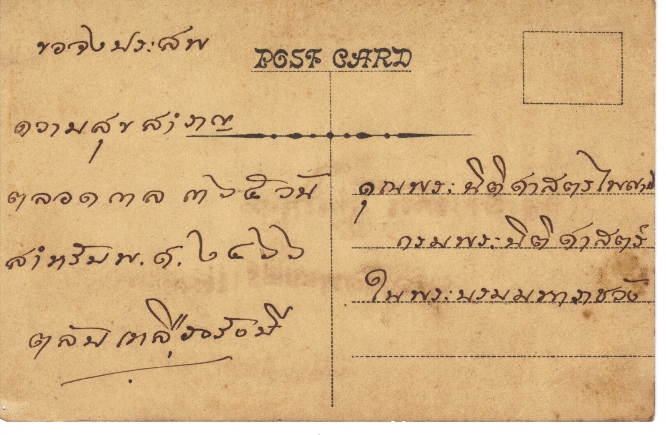 POST CARD
ขอจงประสพ
ความสุขสำราญ
ตลอดกาล ๓๖๕ วัน
สำหรับ พ.ศ. ๒๔๖๖
ตลับ
คุณพระนิติศาสตรไพศาล
กรมพระนิติศาสตร์
ในพระบรมมหาราชวัง